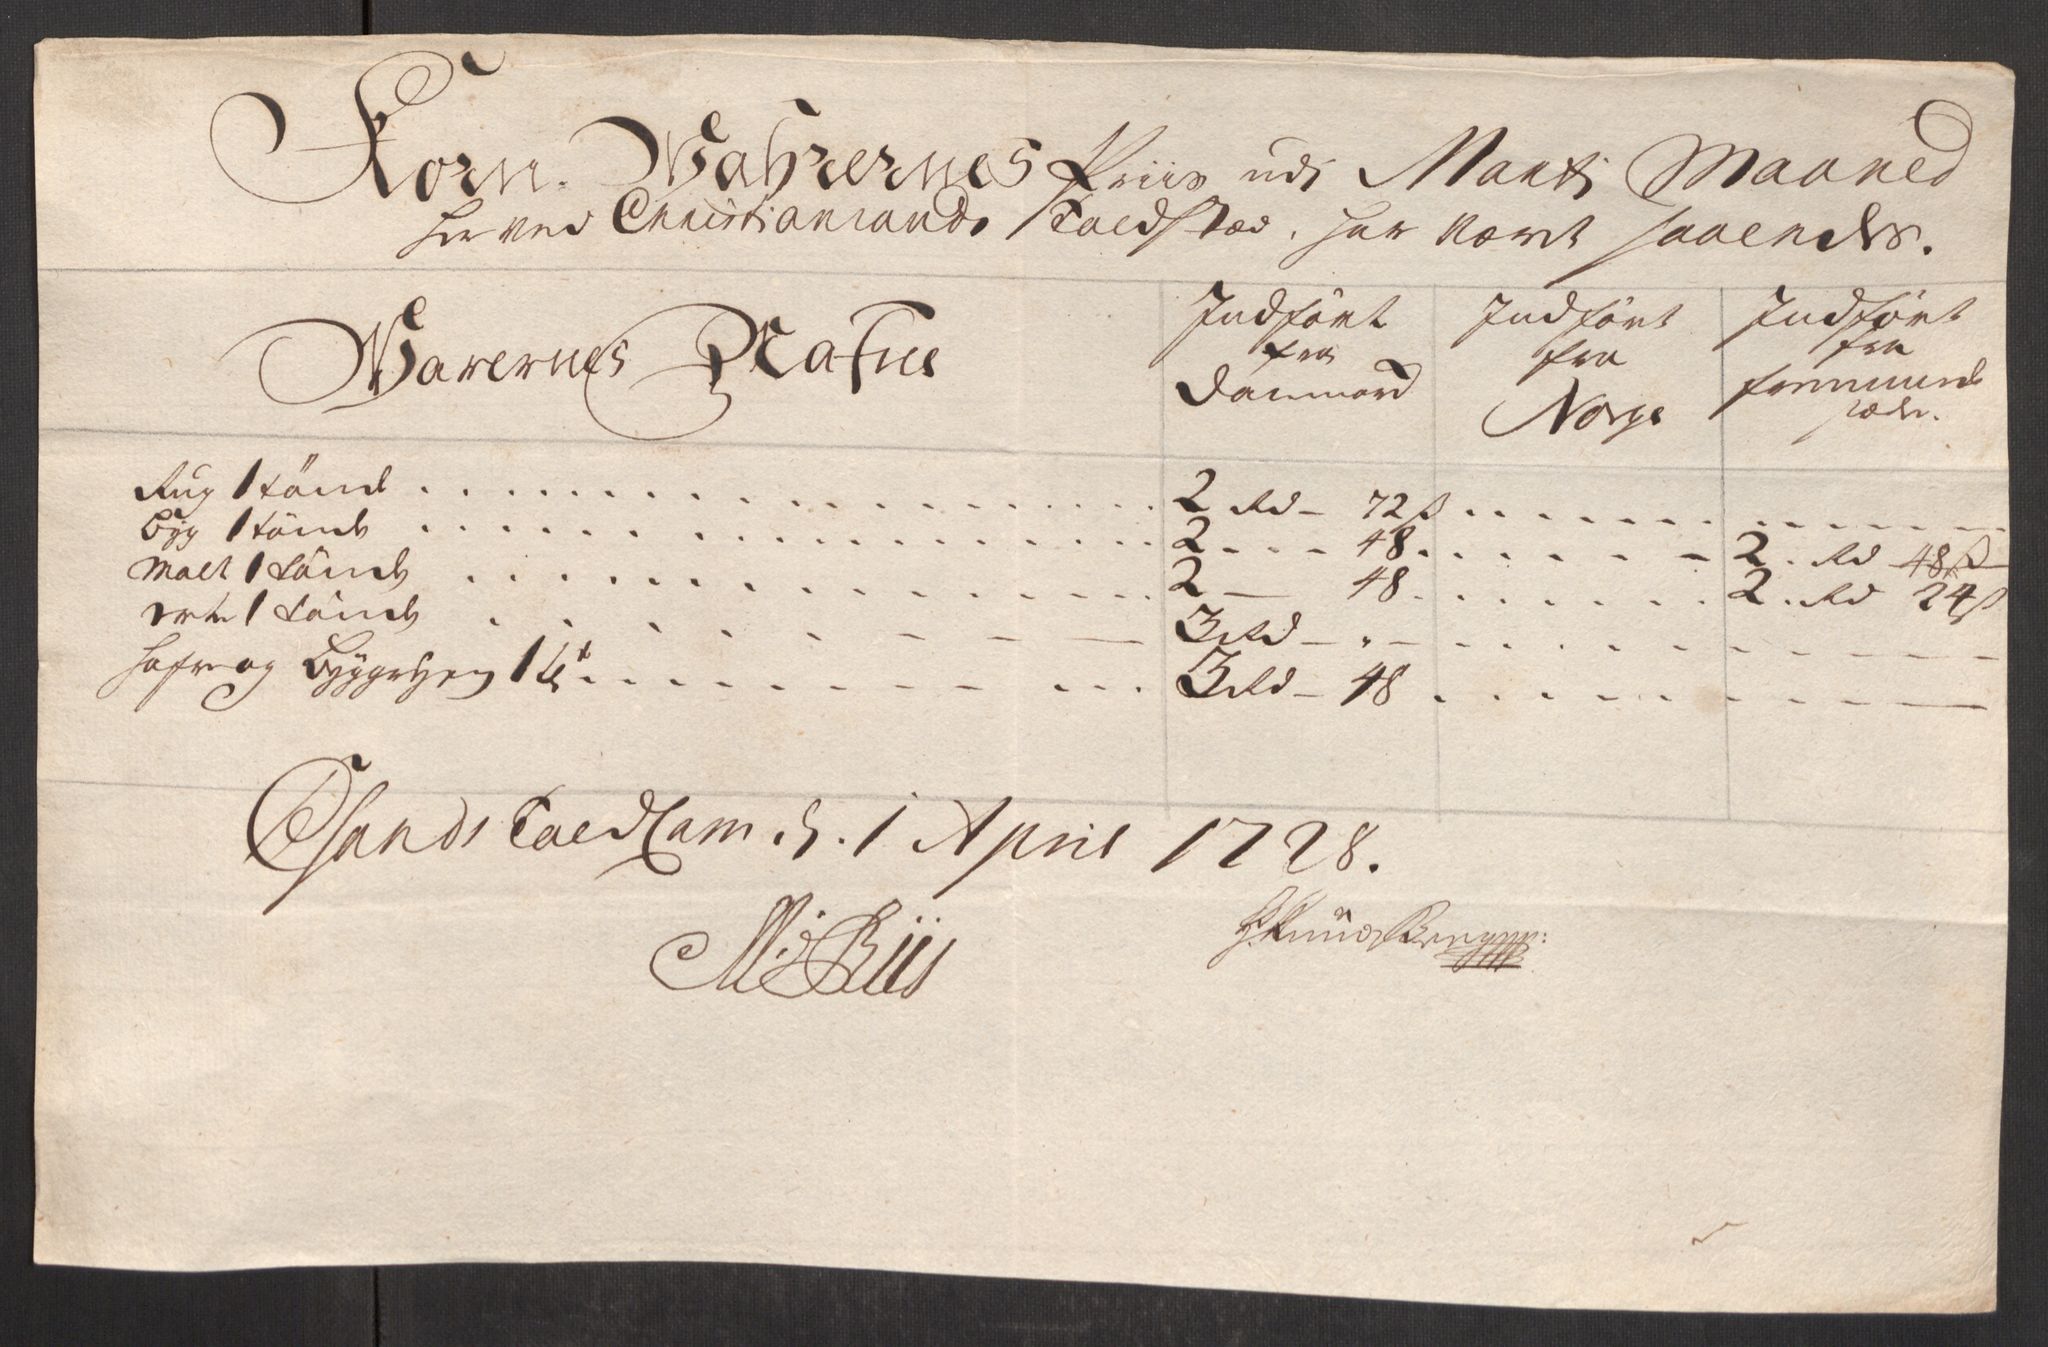 Korn-Wahrernes Priis udi Marti Maaned
her ved Christiansands Toldsted, har været saaledes.
Warernes Nafne
Indført fra Danmarck
Indført fra Norge
Indført fra fremmede stæder.
Rug 1 tönde . . . . 2 Rd – 72 ß . . . .
Byg 1 tönde . . . . 2 . . . – 48 . . . . – 2 . Rd 48 ß
Malt 1 tönde . . . . 2 — 48 . . . . 2 . Rd 24 ß
Erter 1 tönde . . . . 3 Rd – „ – . . . .
Hafre og Byggryn 1 . . . . 3 Rd – 48 . . . .
Csands Told Cam. d. 1 April 1728.
Riis